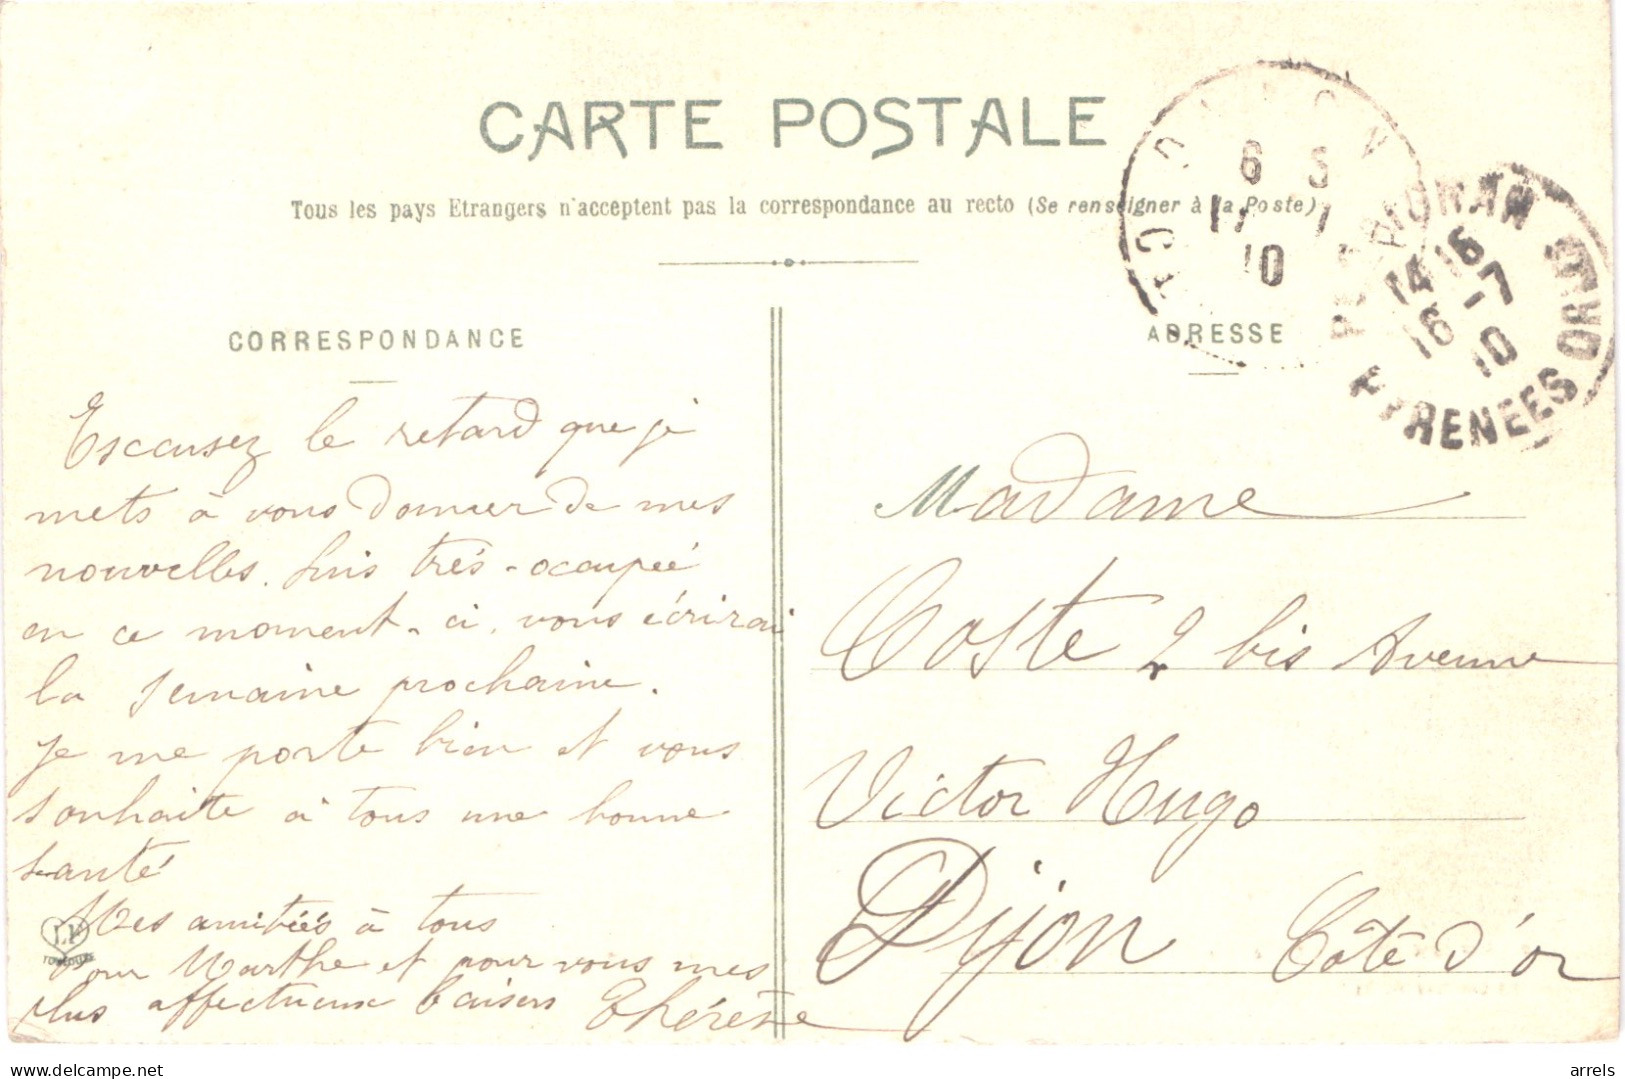 CARTE POSTALE
Tous les pays Etrangers n'acceptent pas la correspondance au recto (Se renseigner à la Poste)
6 S
17 - 7
10
PERPIGNAN
14 16
16 - 7
10
PYRENEES ORIES
CORRESPONDANCE
Escusez le retard que je
mets à vous donner de mes
nouvelles. Suis très-occupée
en ce moment-ci, vous écrirai
la semaine prochaine.
Je me porte bien et vous
souhaite à tous une bonne
santé
Mes amitiés à tous
Pour Marthe et pour vous mes
plus affectueux baisers Thérèse
LF
TOULOUSE
ADRESSE
Madame
Coste 2 bis Avenue
Victor Hugo
Dijon Côte d'or
delcampe.net
arrels